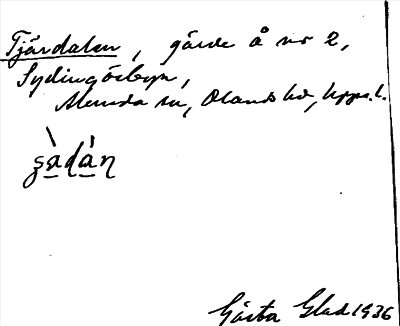 Tjärdalen, gärde å nr 2,
Sydingösbyn,
Morunda sn, Olands hd, Upps. l.
Gösta Glad 1936